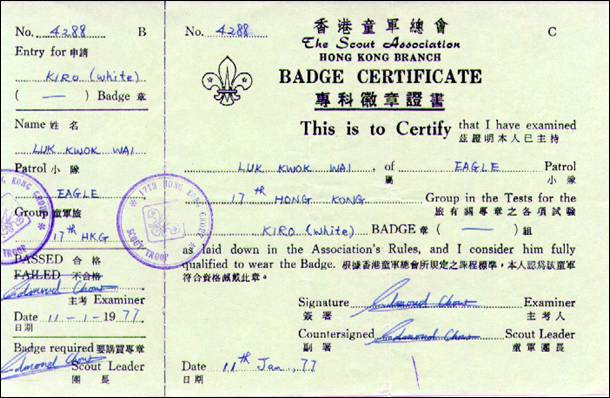 No. 4288 B
Entry for 申請
KIRO (White)
( — ) Badge 章
Name 姓名
LUK KWOK WAI
Patrol 小隊
EAGLE
Group 童軍旅
17th HKG
PASSED 合格
FAILED 不合格
Edmond Chow
主考 Examiner
Date 11-1-1977
日期
Badge required 要購買專章
Edmond Chow
Scout Leader
團長
17TH HONG KONG GROUP
SCOUT TROOP
No. 4288 C
香港童軍總會
The Scout Association
HONG KONG BRANCH
BADGE CERTIFICATE
專科徽章證書
This is to Certify that I have examined
茲證明本人已主持
LUK KWOK WAI, of EAGLE Patrol
屬 小隊
17th HONG KONG Group in the Tests for the
旅有關專章之各項試驗
KIRO (White) BADGE 章 ( — ) 組
as laid down in the Association's Rules, and I consider him fully
qualified to wear the Badge. 根據香港童軍總會所規定之課程標準，本人認為該童軍
符合資格佩戴此章。
Signature Edmond Chow Examiner
簽署 主考人
Countersigned Edmond Chow Scout Leader
副署 童軍團長
Date 11th Jan, 77
日期